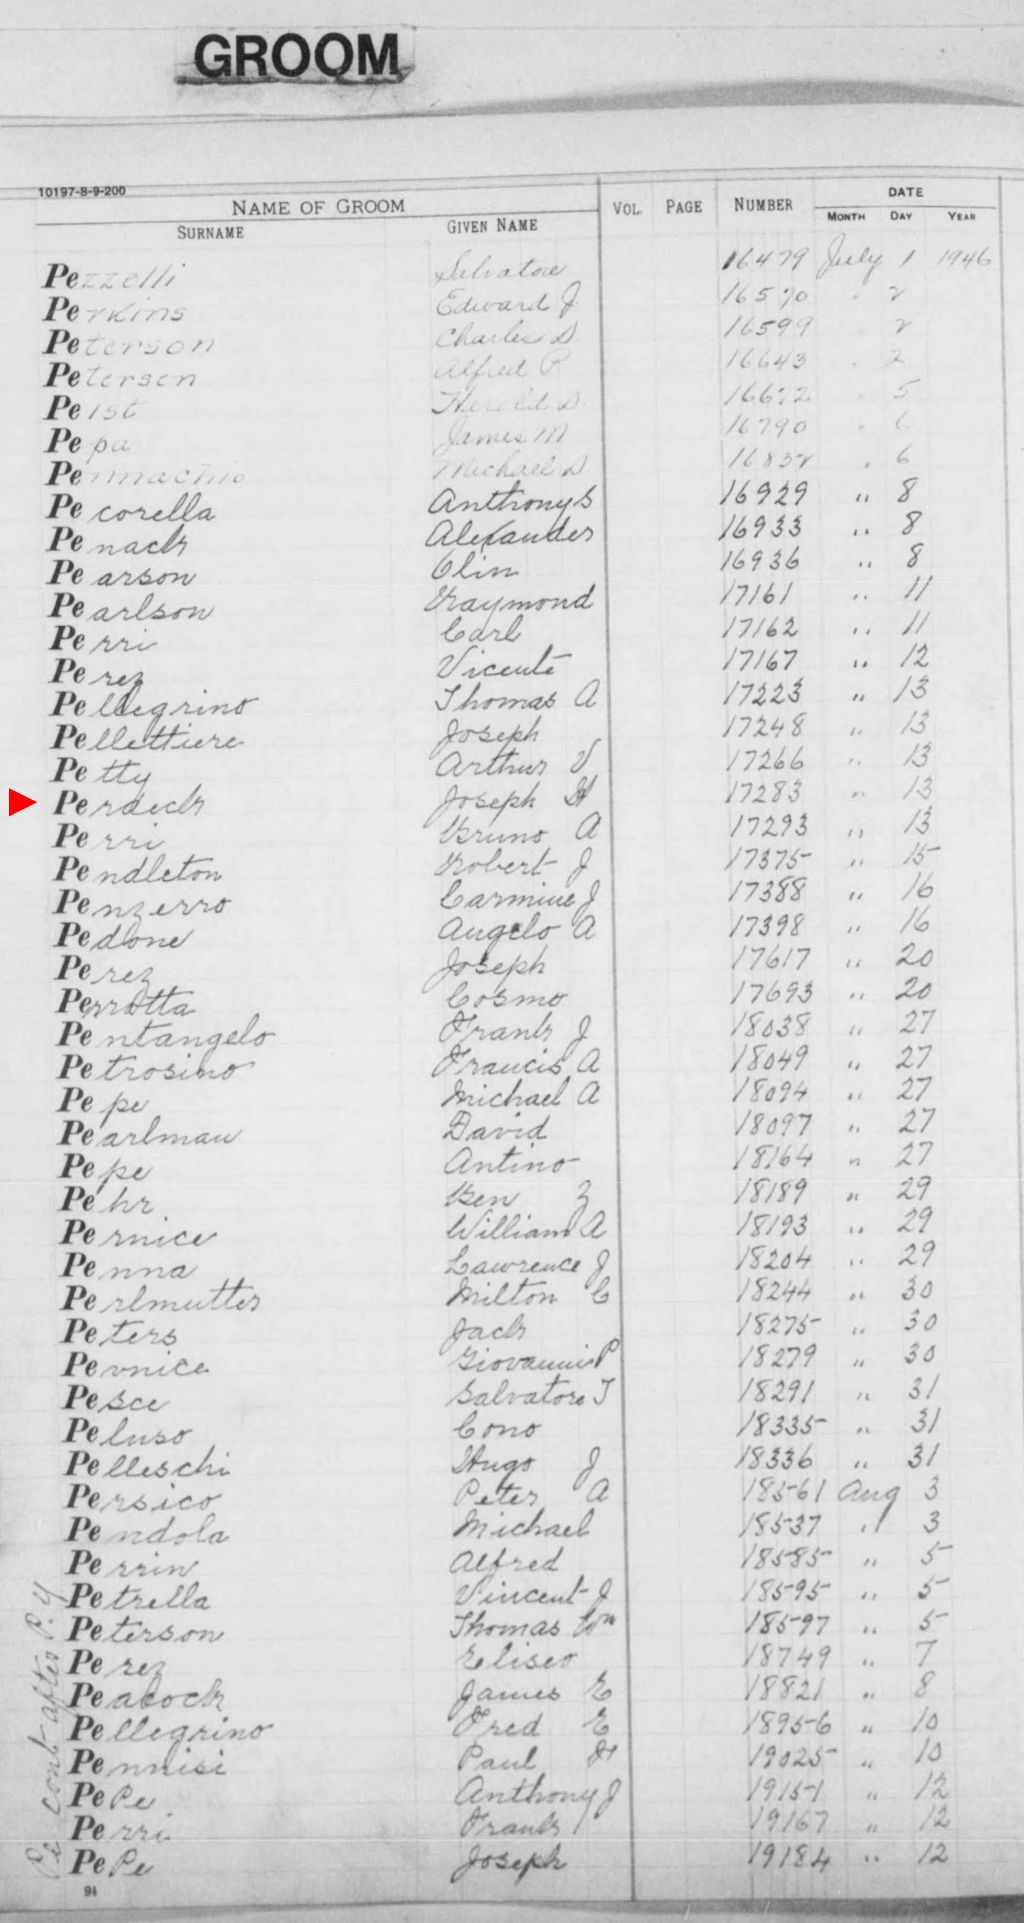 GROOM
10197-8-9-200
NAME OF GROOM VOL. PAGE NUMBER DATE
SURNAME GIVEN NAME MONTH DAY YEAR
Pezzelli Salvatore 16479 July 1 1946
Perkins Edward J 16570 " 2
Peterson Charles D 16599 2
Petersen Alfred P 16643 " 2
Peist Herold D 16672 " 5
Pepa James M 16790 " 6
Pennachio Michael D 16832 " 6
Pecorella Anthony S 16929 " 8
Penack Alexander 16933 " 8
Pearson Olin 16936 " 8
Pearlson Raymond 17161 " 11
Perri Carl 17162 " 11
Perez Vicente 17167 " 12
Pellegrino Thomas A 17223 " 13
Pellettiere Joseph 17248 " 13
Petty Arthur V 17266 " 13
Perdeck Joseph H 17283 " 13
Perri Bruno A 17293 " 13
Pendleton Robert J 17375 " 15
Penzerro Carmine J 17388 " 16
Pedone Angelo A 17398 " 16
Perez Joseph 17617 " 20
Perrotta Cosmo 17693 " 20
Pentangelo Frank J 18038 " 27
Petrosino Francis A 18049 " 27
Pepe Michael A 18094 " 27
Pearlman David 18097 " 27
Pepe Antino 18164 " 27
Pehr Ben Z 18189 " 29
Pernice William A 18193 " 29
Penna Lawrence J 18204 " 29
Perlmutter Milton C 18244 " 30
Peters Jack 18275 " 30
Pernice Giovanni P 18279 " 30
Pesce Salvatore T 18291 " 31
Peluso Cono 18335 " 31
Pelleschi Hugo J 18336 " 31
Persico Peter A 18561 Aug 3
Pendola Michael 18537 " 3
Perrin Alfred 18585 " 5
Petrella Vincent J 18595 " 5
Peterson Thomas Wm 18597 " 5
Perez Eliseo 18749 " 7
Peacock James E 18821 " 8
Pellegrino Fred E 18956 " 10
Pennisi Paul H 19025 " 10
PePe Anthony J 19151 " 12
Perri Frank 19167 " 12
PePe Joseph 19184 " 12
Pe cont after P.Y
94